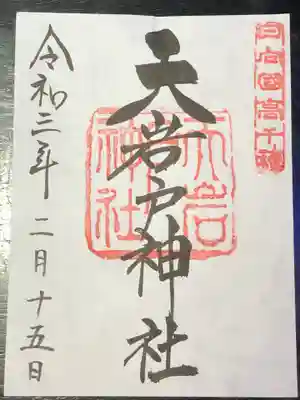 日向国高千穂
天岩戸神社
天岩
神社
令和三年 二月十五日